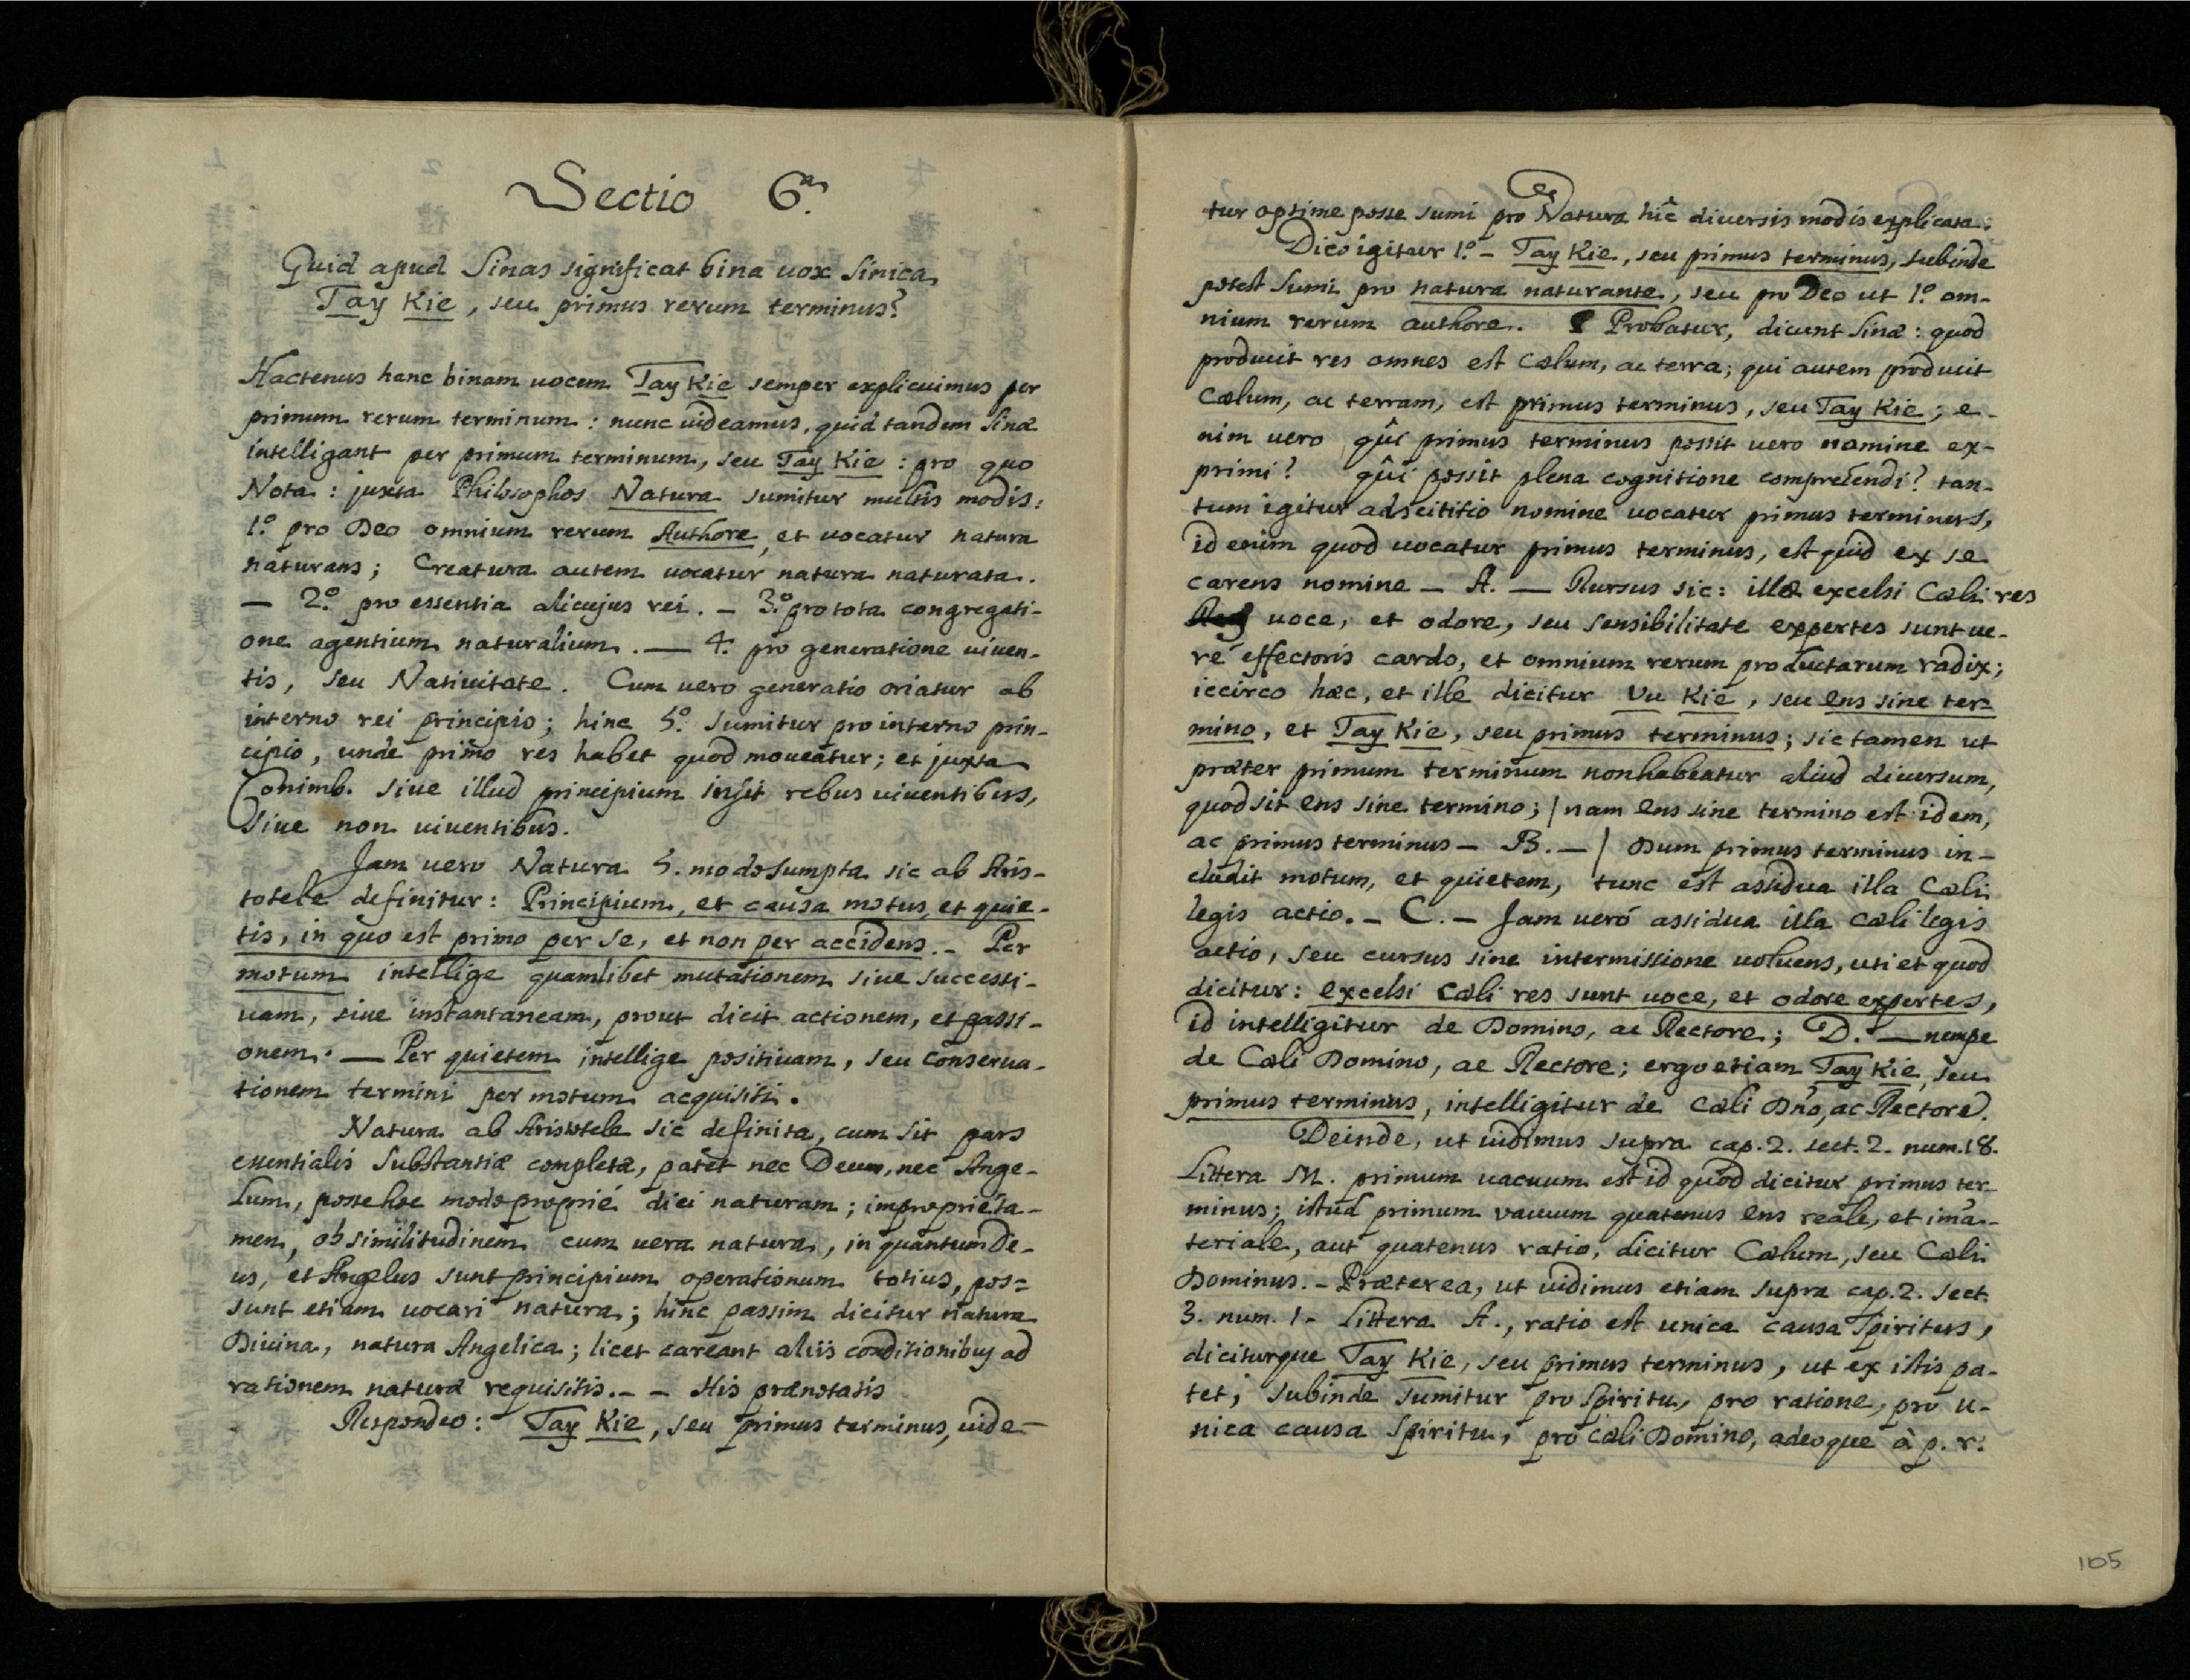 Sectio 6.ª
Quid apud Sinas significat bina uox Sinica
Tay Kie, seu primus rerum terminus?
Hactenus hanc binam uocem Tay Kie semper explicuimus per
primum rerum terminum: nunc uideamus, quid tandem Sinæ
intelligant per primum terminum, seu Tay Kie: pro quo
Nota: juxta Philosophos Natura sumitur multis modis:
1.º pro Deo omnium rerum Authore, et uocatur natura
naturans; Creatura autem uocatur natura naturata.
— 2.º pro essentia alicujus rei. – 3.º pro tota congregati-
one agentium naturalium. — 4. pro generatione uiuen-
tis, seu Natiuitate. Cum uero generatio oriatur ab
interno rei principio; hinc 5.º sumitur pro interno prin-
cipio, unde primo res habet quod moueatur; et juxta
Conimb. siue illud principium insit rebus uiuentibus,
siue non uiuentibus.
Jam uero Natura 5. modo sumpta sic ab Aris-
totele definitur: Principium, et causa motus, et quie-
tis, in quo est primo per se, et non per accidens. – Per
motum intellige quamlibet mutationem siue successi-
uam, siue instantaneam, prout dicit actionem, et passi-
onem. — Per quietem intellige positiuam, seu conserua-
tionem termini per motum acquisiti.
Natura ab Aristotele sic definita, cum sit pars
essentialis substantiæ completæ, patet nec Deum, nec Ange-
lum, posse hoc modo proprié dici naturam; improprié ta-
men, ob similitudinem cum uera natura, in quantum De-
us, et Angelus sunt principium operationum totius, pos=
sunt etiam uocari natura; hinc passim dicitur natura
Diuina, natura Angelica; licet careant aliis conditionibus ad
rationem naturæ requisitis. – – His prænotatis
Respondeo: Tay Kie, seu primus terminus, uide-
tur optime posse sumi pro Natura hîc diuersis modis explicata:
Dico igitur 1.º – Tay Kie, seu primus terminus, subinde
potest sumi pro natura naturante, seu pro Deo ut 1.º om-
nium rerum authore. Probatur, dicunt Sinæ: quod
producit res omnes est Cœlum, ac terra; qui autem producit
Cœlum, ac terram, est primus terminus, seu Tay Kie; e-
nim uero quî primus terminus possit uero nomine ex-
primi? quî possit plena cognitione comprehendi? tan-
tum igitur adscititio nomine uocatur primus terminus,
id enim quod uocatur primus terminus, est quid ex se
carens nomine – A. — Rursus sic: illæ excelsi Cœli res
uoce, et odore, seu sensibilitate expertes sunt ue-
ré effectoris cardo, et omnium rerum productarum radix;
iccirco hæc, et ille dicitur Vu Kie, seu ens sine ter=
mino, et Tay Kie, seu primus terminus; sic tamen ut
præter primum terminum non habeatur aliud diuersum,
quod sit ens sine termino; | nam ens sine termino est idem,
ac primus terminus – B. – | Dum primus terminus in-
cludit motum, et quietem, tunc est assidua illa Cœli
legis actio. – C. – Jam ueró assidua illa cœli legis
actio, seu cursus sine intermissione uoluens, uti et quod
dicitur: excelsi Cœli res sunt uoce, et odore expertes,
id intelligitur de Domino, ac Rectore; D. — nempe
de Cœli Domino, ac Rectore; ergo etiam Tay Kie, seu
primus terminus, intelligitur de Cœli Dño, ac Rectore.
Deinde, ut uidimus supra cap. 2. sect. 2. num. 18.
Littera M. primum uacuum est id quod dicitur primus ter-
minus; istud primum vacuum quatenus ens reale, et im̃a-
teriale, aut quatenus ratio, dicitur Cœlum, seu Cœli
Dominus. – Præterea, ut uidimus etiam supra cap. 2. sect.
3. num. 1. Littera A., ratio est unica causa Spiritus,
diciturque Tay Kie, seu primus terminus, ut ex istis pa-
tet; subinde sumitur pro Spiritu, pro ratione, pro u-
nica causa Spiritu, pro Cœli Domino, adeoque à p. r.
105